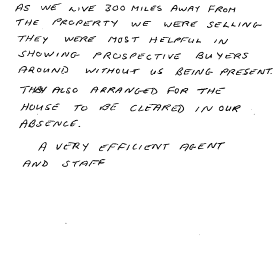 AS WE LIVE 300 MILES AWAY FROM
THE PROPERTY WE WERE SELLING
THEY WERE MOST HELPFUL IN
SHOWING PROSPECTIVE BUYERS
AROUND WITHOUT US BEING PRESENT.
THEY ALSO ARRANGED FOR THE
HOUSE TO BE CLEARED IN OUR
ABSENCE.
A VERY EFFICIENT AGENT
AND STAFF